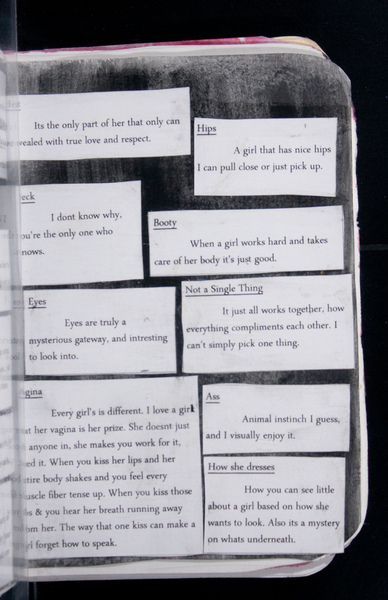 Its the only part of her that only can
revealed with true love and respect.
Hips
A girl that has nice hips
I can pull close or just pick up.
eck
I dont know why,
you're the only one who
nows.
Booty
When a girl works hard and takes
care of her body it's just good.
Eyes
Eyes are truly a
mysterious gateway, and intresting
to look into.
Not a Single Thing
It just all works together, how
everything compliments each other. I
can't simply pick one thing.
gina
Every girl's is different. I love a girl
her vagina is her prize. She doesnt just
anyone in, she makes you work for it,
it. When you kiss her lips and her
tire body shakes and you feel every
uscle fiber tense up. When you kiss those
& you hear her breath running away
her. The way that one kiss can make a
forget how to speak.
Ass
Animal instinch I guess,
and I visually enjoy it.
How she dresses
How you can see little
about a girl based on how she
wants to look. Also its a mystery
on whats underneath.